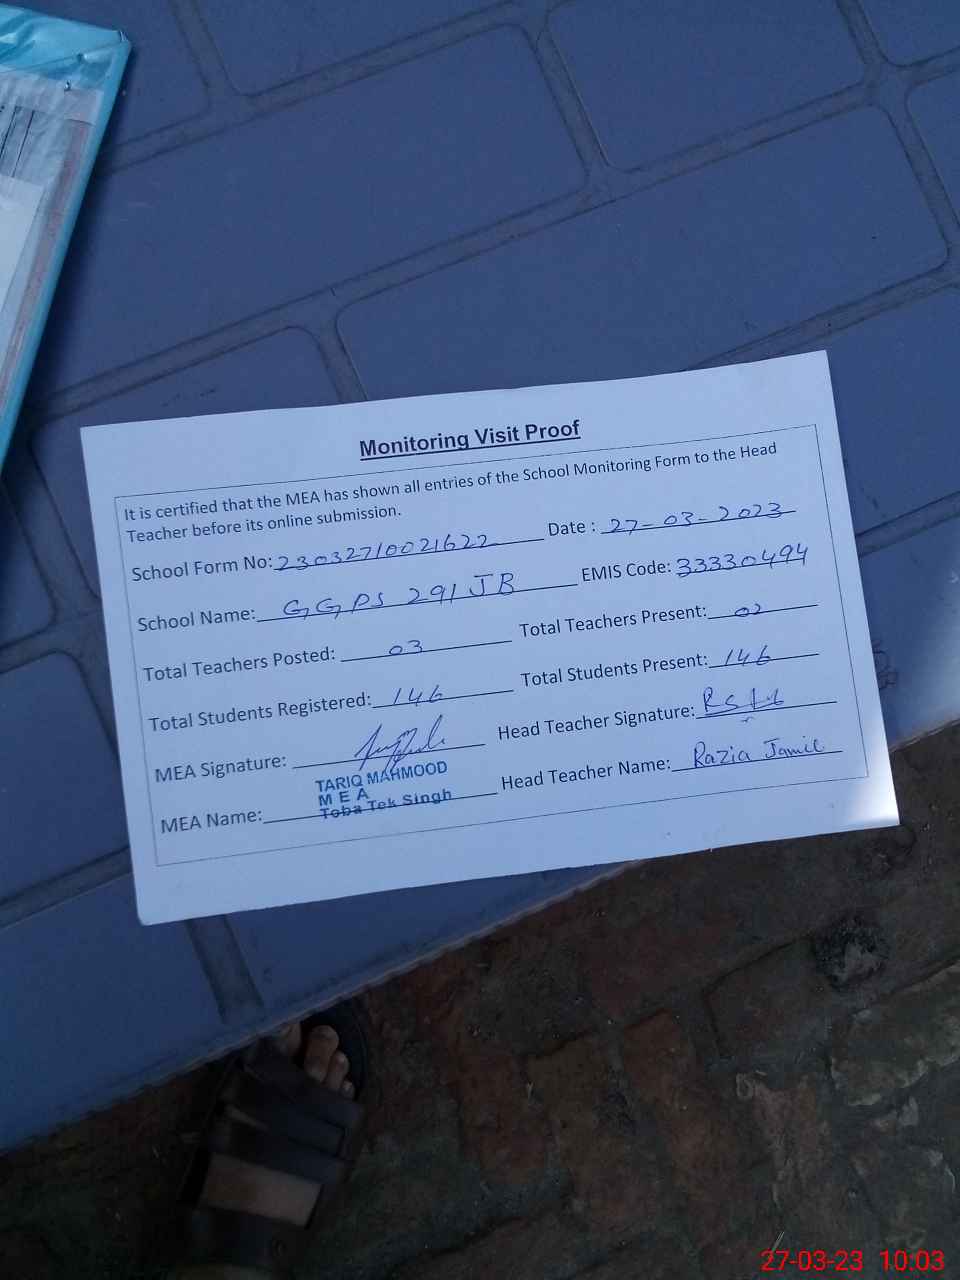 Monitoring Visit Proof
It is certified that the MEA has shown all entries of the School Monitoring Form to the Head
Teacher before its online submission.
School Form No: 23032710021622 Date : 27-03-2023
School Name: GGPS 291 JB EMIS Code: 33330494
Total Teachers Posted: 03 Total Teachers Present: 02
Total Students Registered: 146 Total Students Present: 146
MEA Signature: Head Teacher Signature:
MEA Name: TARIQ MAHMOOD Head Teacher Name: Razia Jamil
M E A
Toba Tek Singh
27-03-23 10:03